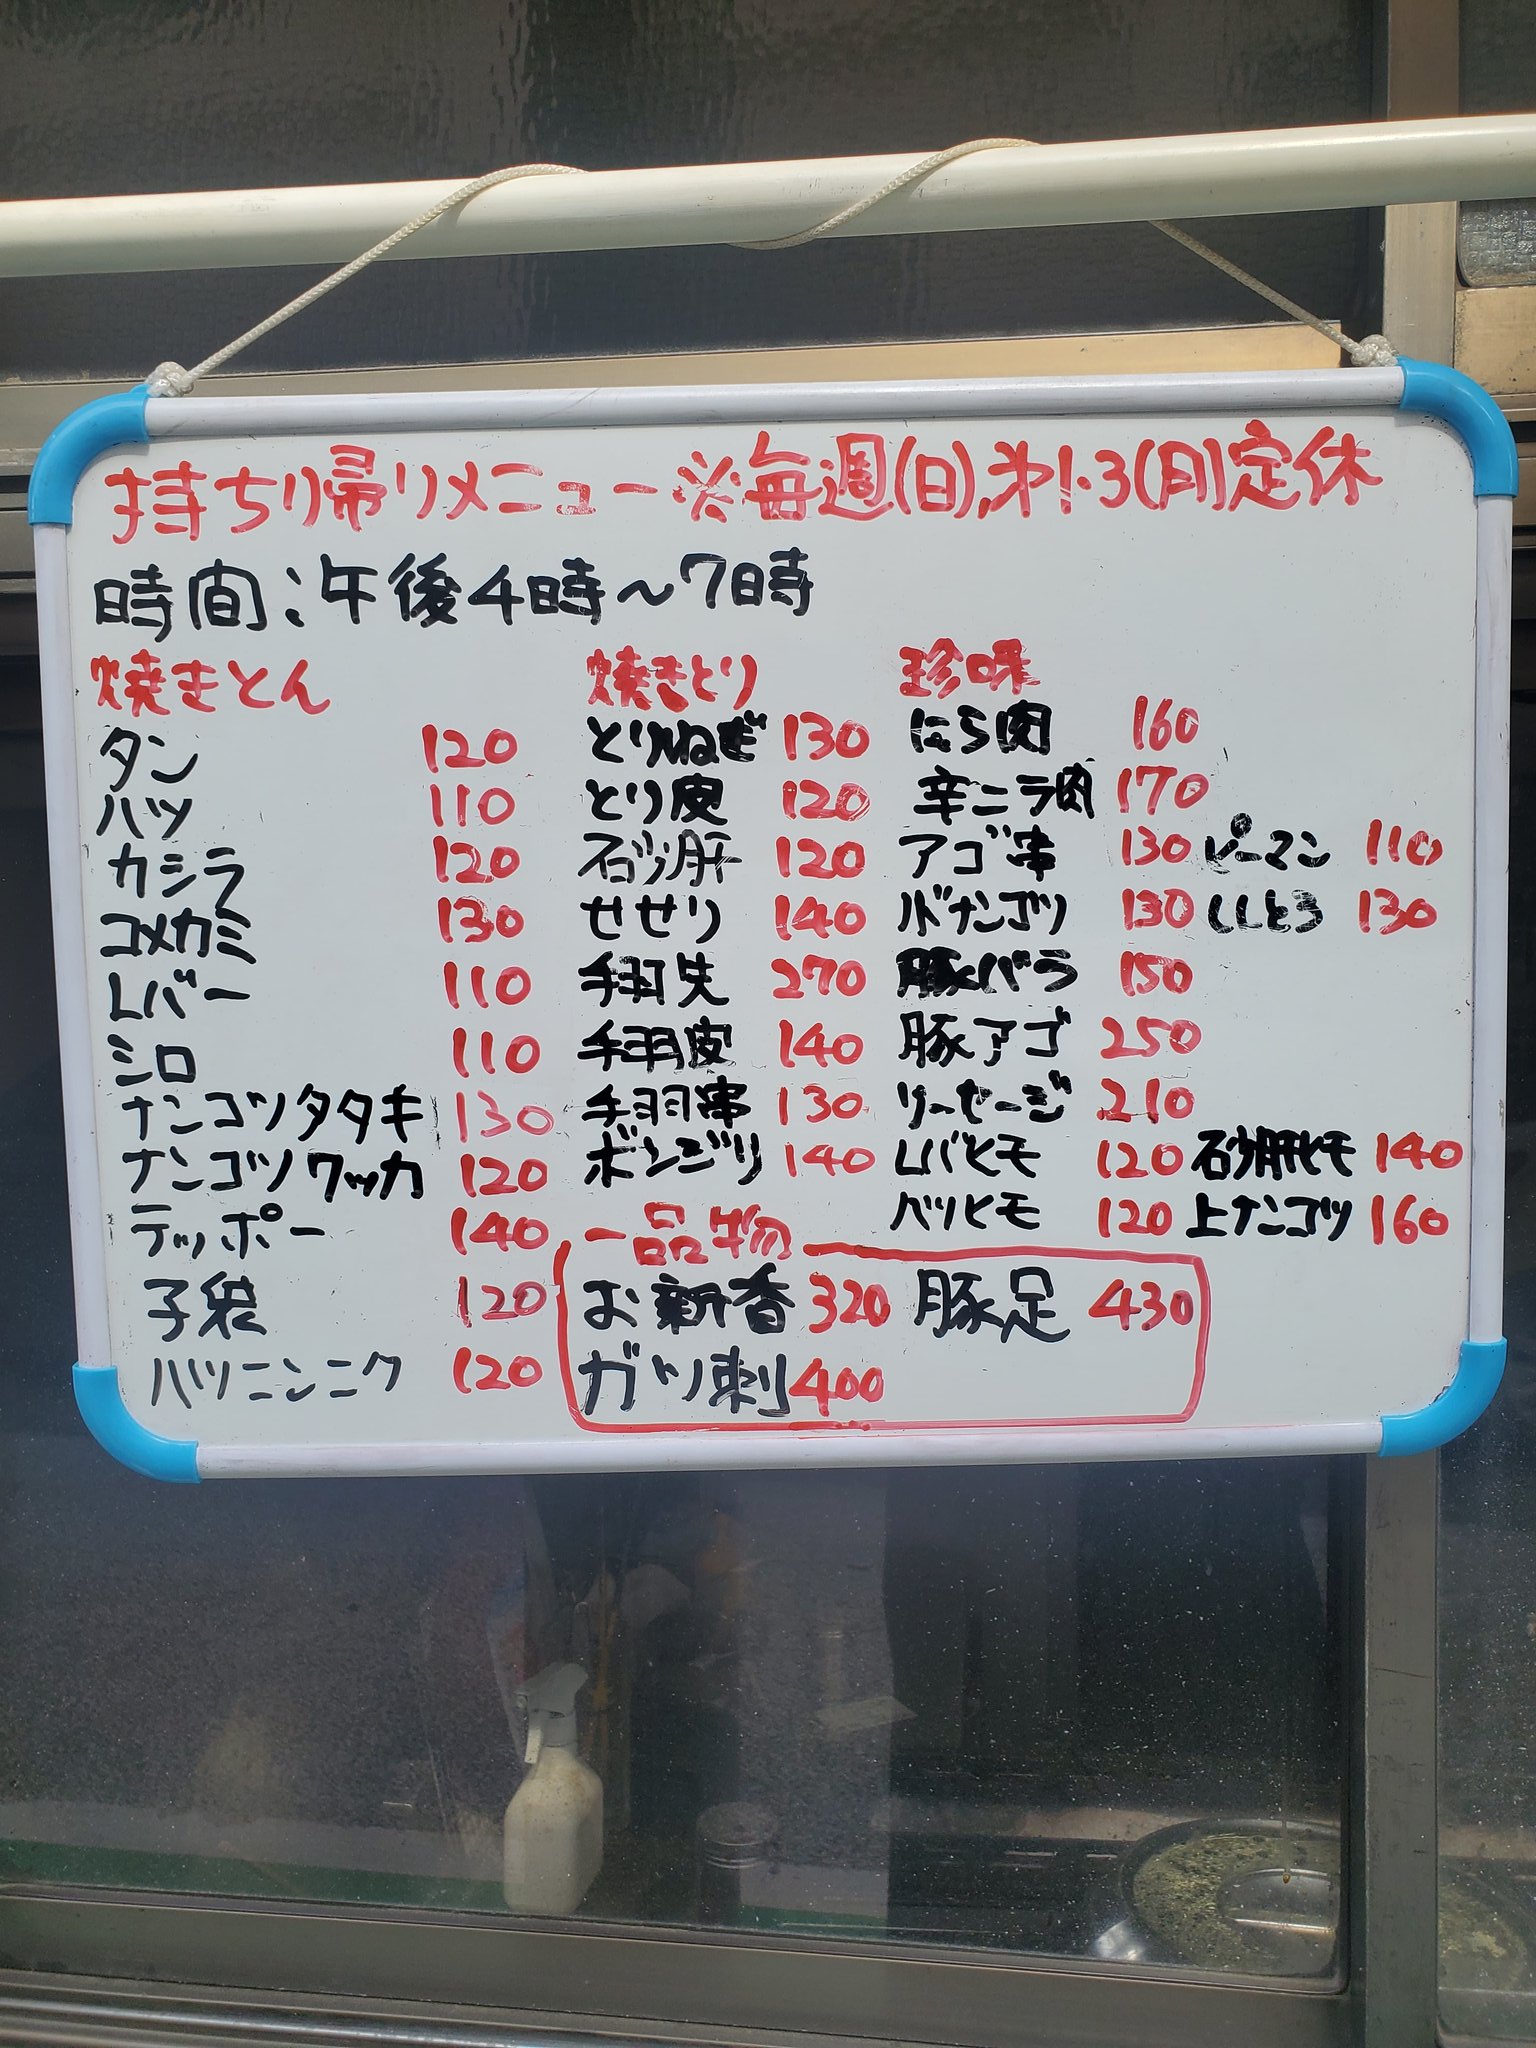 持ち帰りメニュー※毎週(日),第1・3(月)定休
時間:午後4時～7時
焼きとん
タン 120
ハツ 110
カシラ 120
コメカミ 130
レバー 110
シロ 110
ナンコツタタキ 130
ナンコツワッカ 120
テッポー 140
子袋 120
ハツニンニク 120
焼きとり
とりねぎ 130
とり皮 120
砂肝 120
せせり 140
手羽先 270
手羽皮 140
手羽串 130
ボンジリ 140
珍味
にら肉 160
辛ニラ肉 170
アゴ串 130 ピーマン 110
ノドナンコツ 130 ししとう 130
豚バラ 150
豚アゴ 250
ソーセージ 210
レバヒモ 120 砂肝ヒモ 140
ハツヒモ 120 上ナンコツ 160
一品物
お新香 320 豚足 430
ガツ刺 400